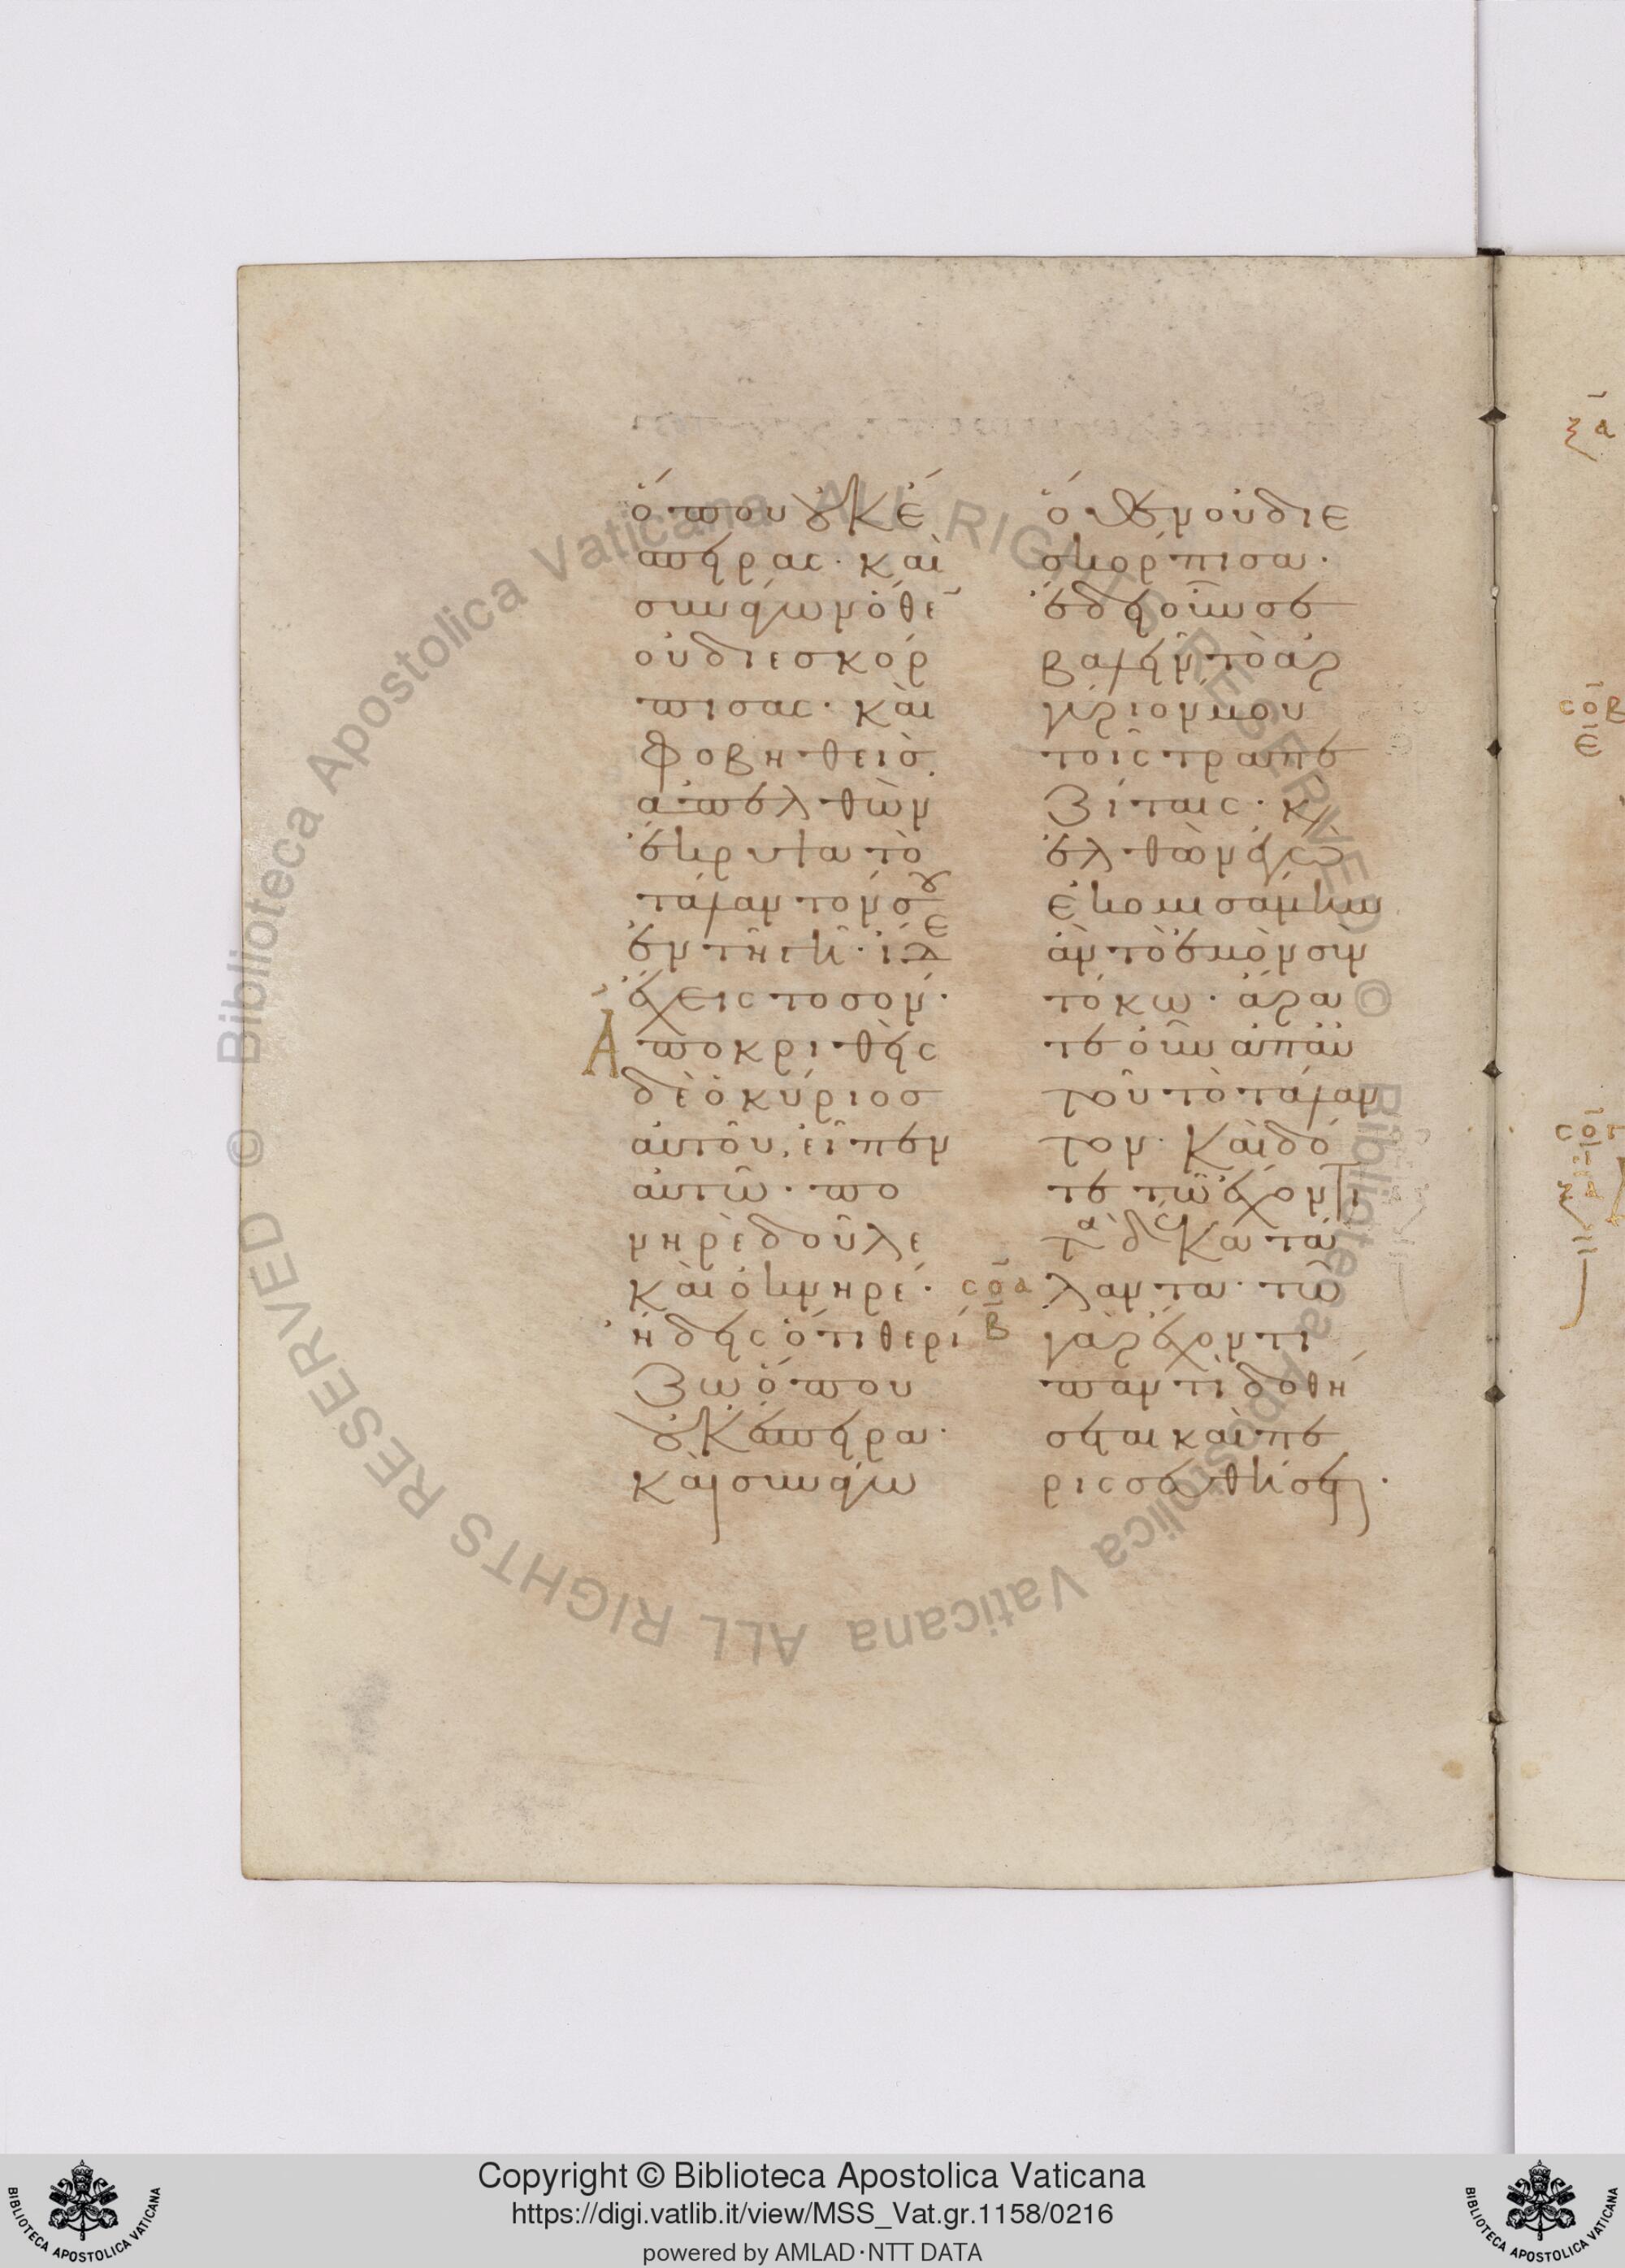 ὅπου οὐκ ἔ
σπειρας· καὶ
συνάγων ὅθε̄
οὐ διεσκόρ
πισας· καὶ
φοβηθεὶσ
ἀπελθὼν
ἔκρυψα τὸ
τάλαντόν σου
ἐν τῆ γῆ· ἴδε
ἔχεις τὸ σόν·
Ἀποκριθεὶς
δὲ ὁ κύριοσ
αὐτοῦ, εἶπεν
αὐτῶ· πο
νηρὲ δοῦλε
καὶ ὀκνηρέ·
σο̄α
β
ἤδεις ὅτι θερί
ζω ὅπου
οὐκ ἔσπειρα·
καὶ συνάγω
ὅθεν οὐ διε
σκόρπισα·
ἔδει οὖν σε
βαλεῖν τὸ ἀρ
γύριόν μου
τοῖς τραπε
ζίταις· κ
ἐλθὼν ἐγὼ
ἐκομισάμην
ἂν τὸ ἐμὸν σὺν
τόκω· ἄρα
τε οὖν ἀπ αὐ
τοῦ τὸ τάλαν
τον· καὶ δό
τε τῶ ἔχοντι
τὰ δέκα τά
λαντα· τῶ
γὰρ ἔχοντι
παντὶ δοθή
σεται καὶ πε
ρισσευθήσεται·
ξα
σο̄β
ε̄
Copyright © Biblioteca Apostolica Vaticana
https://digi.vatlib.it/view/MSS_Vat.gr.1158/0216
powered by AMLAD·NTT DATA
BIBLIOTECA APOSTOLICA VATICANA
BIBLIOTECA APOSTOLICA VATICANA
© Biblioteca Apostolica Vaticana ALL RIGHTS RESERVED
© Biblioteca Apostolica Vaticana ALL RIGHTS RESERVED